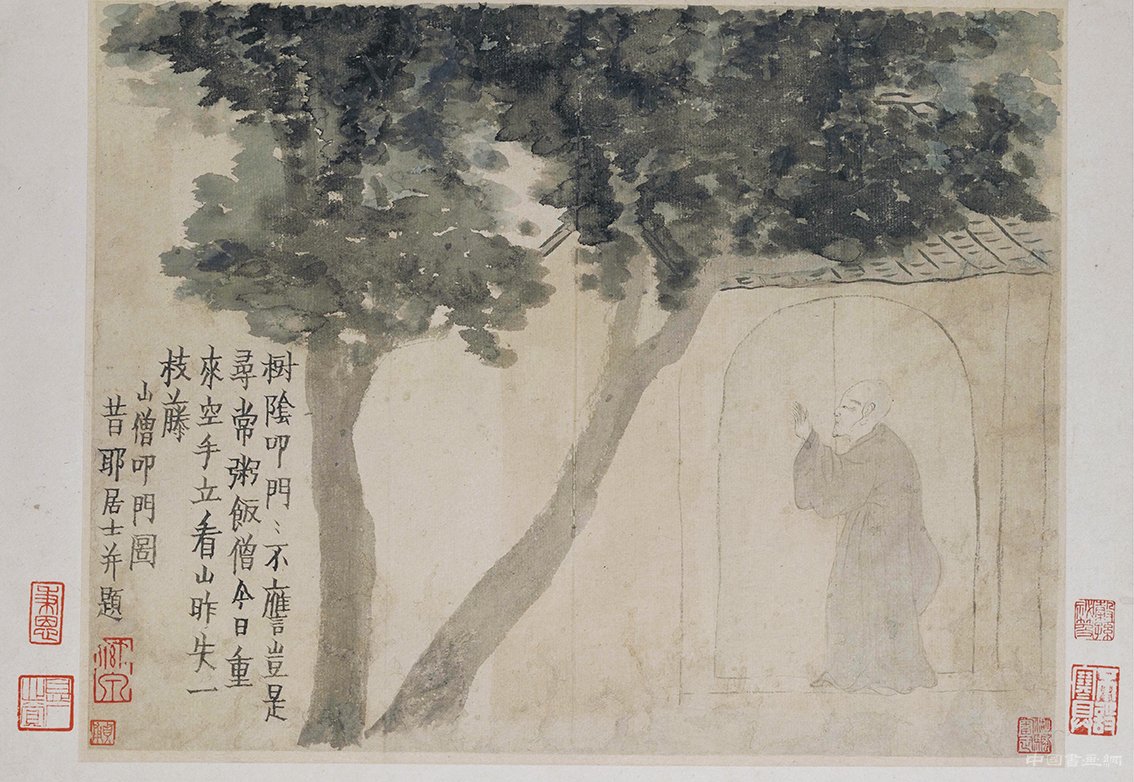 樹陰叩門〻不譍豈是
尋常粥飯僧今日重
來空手立看山昨失一
枝藤
山僧叩門圖
昔耶居士并題
秉恩
中國書畫網